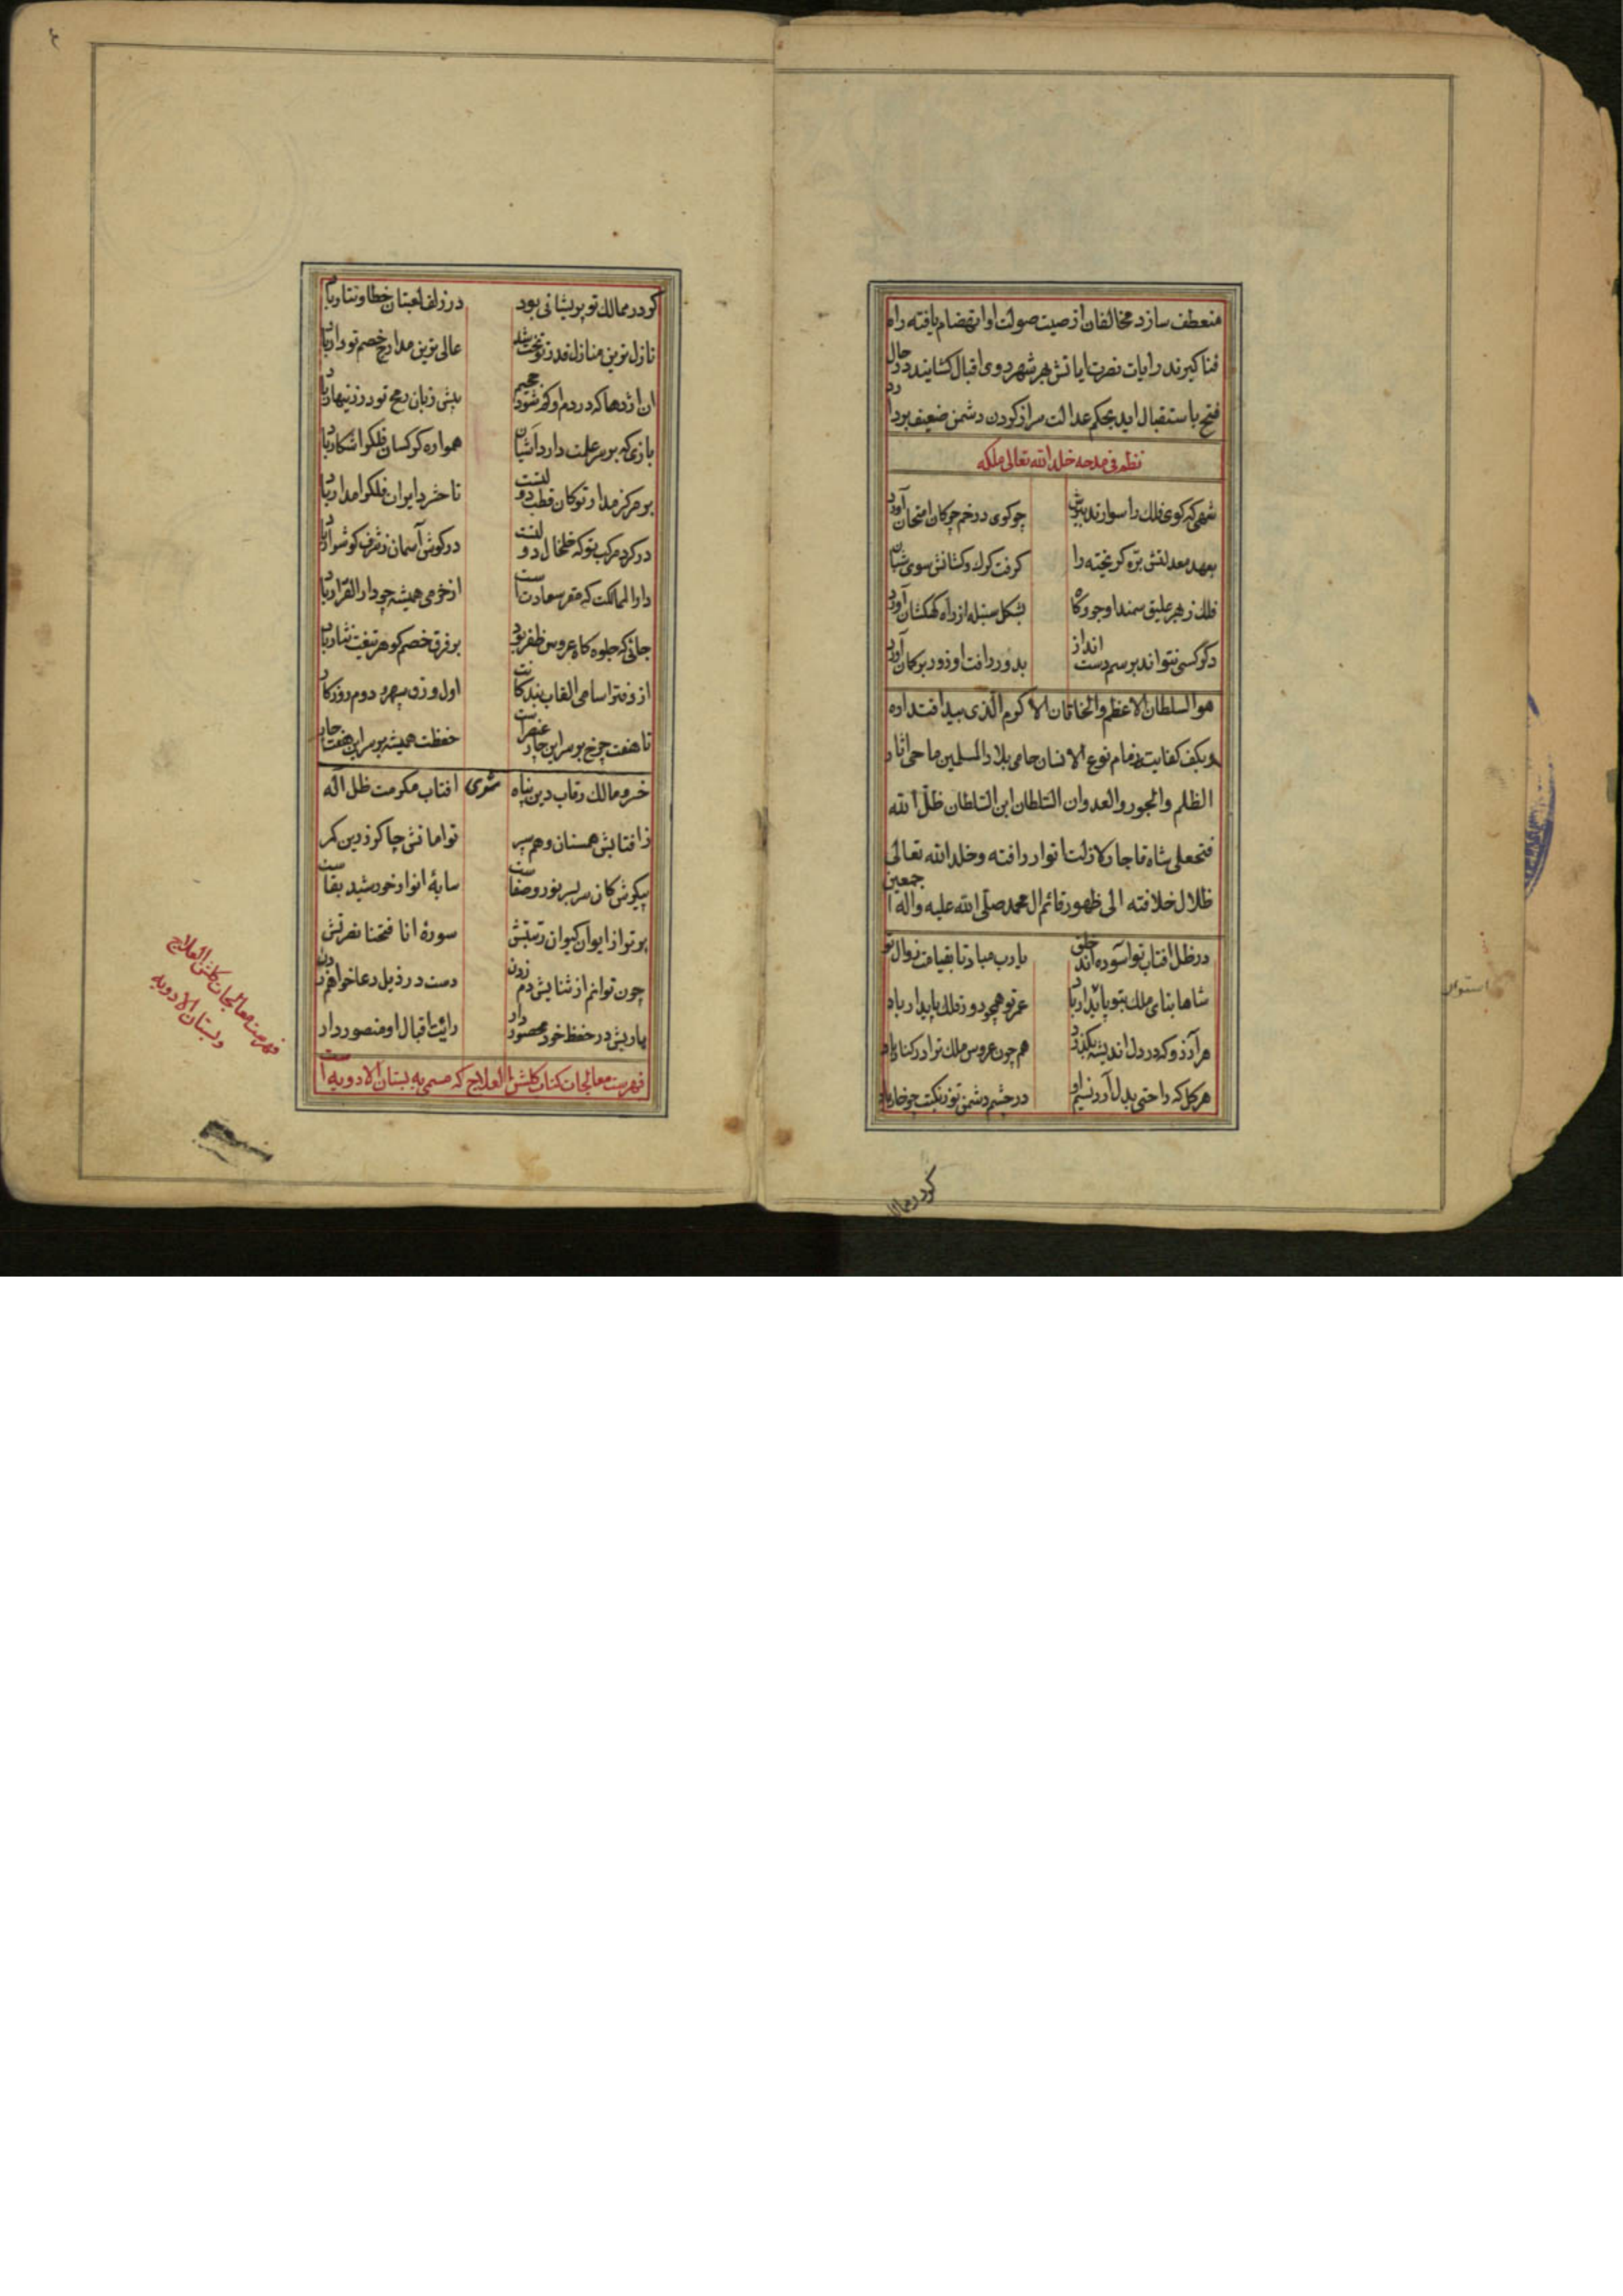 منعطف سازد مخالفان از صیت صولت او انهضام یافته راه
فنا کیرند رایات نصرت ایاتش بهر شهر روی اقبال کشایند در حال
فتح باستقبال اید بحکم عدالت سر از کردن دشمن ضعیف بردارد
نظم فی مدحه خلد الله تعالی ملکه
شهی که کوی فلک را سوارئ بوش چو کوی در خم چوکان امتحان آورد
بعهد معدلتش بره کریخته را کرفت کرك و کشانش سوی شبان آورد
فلك ز بهر علیق سمند او جو و کاه بشکل سنبله از راه کهکشان آورد
دکر کسی نتواند برسم دست انداز بدور رافت او زور بر کمان آورد
هو السلطان الاعظم والخاقان الاکرم الذی بید اقتداره
وبکف کفایت زمام نوع الانسان حامی بلاد المسلمین ماحی اثار
الظلم والجور والعدوان السلطان ابن السلطان ظل الله
فتحعلی شاه قاجار لازالت انوار رافته وخلد الله تعالی
ظلال خلافته الی ظهور قائم ال محمد صلی الله علیه واله اجمعین
در ظل افتاب تو آسوده اند خلق یارب مباد تا بقیامت زوال تو
شاها بنای ملك بتو پائدار باد عمر تو همچو دور فلك پایدار باد
هر آرزو که در دل اندیشه بکذرد هم چون عروس ملك ترا در کنار باد
هر کل که راحتی بدل آرد نسیم او در چشم دشمن تو ز نکبت چو خار باد
کر در ممال
استوال
کر در ممالك تو پریشانی بود در زلف لعبتان خطا و تتار باد
نازل ترین منازل قدر تو تخت شد عالی ترین مدارج خصم تو دار باد
ان اژدها که در دم او کفر شد جحیم پیش زبان رمح تو در زینهار باد
بازی که بر سر علمت دارد آشیان همواره کرکسان فلك را شکار باد
بر مرکز مدار تو کان قطب دولتست تا حشر دایران فلك را مدار باد
در کرد مرکب تو که خلخال دولتست در کوش آسمان ز شرف کوشوار باد
دار الممالکت که مقر سعادتست از خرمی همیشه چو دار القرار باد
جائی که جلوه کاه عروس ظفر بود بر فرق خصم کوهر تیغت نثار باد
از دفتر اسامی القاب بندکانت اول ورق سپهر و دوم روزکار باد
تا هفت چرخ بر سر این چار عنصر است حفظت همیشه بر سر این هفت چار باد
خسرو مالك رقاب دین پناه مثنوی افتاب مکرمت ظل اله
ز افتابش همسنان و هم سپر توامانش چاکر زرین کمر
پیکرش کان سربسر نور و صفاست سایهٔ انوار خورشید بقاست
برتر از ایوان کیوان رتبتش سورهٔ انا فتحنا نصرتش
چون توانم از ثنایش دم زدن دست در ذیل دعا خواهم زدن
یاربش در حفظ خود محصور دار رایت اقبال او منصور دار
فهرست معالجات کتاب کلشن العلاج که مسمی به بستان الادویه است
فهرست معالجات کلشن العلاج
و بستان الادویه